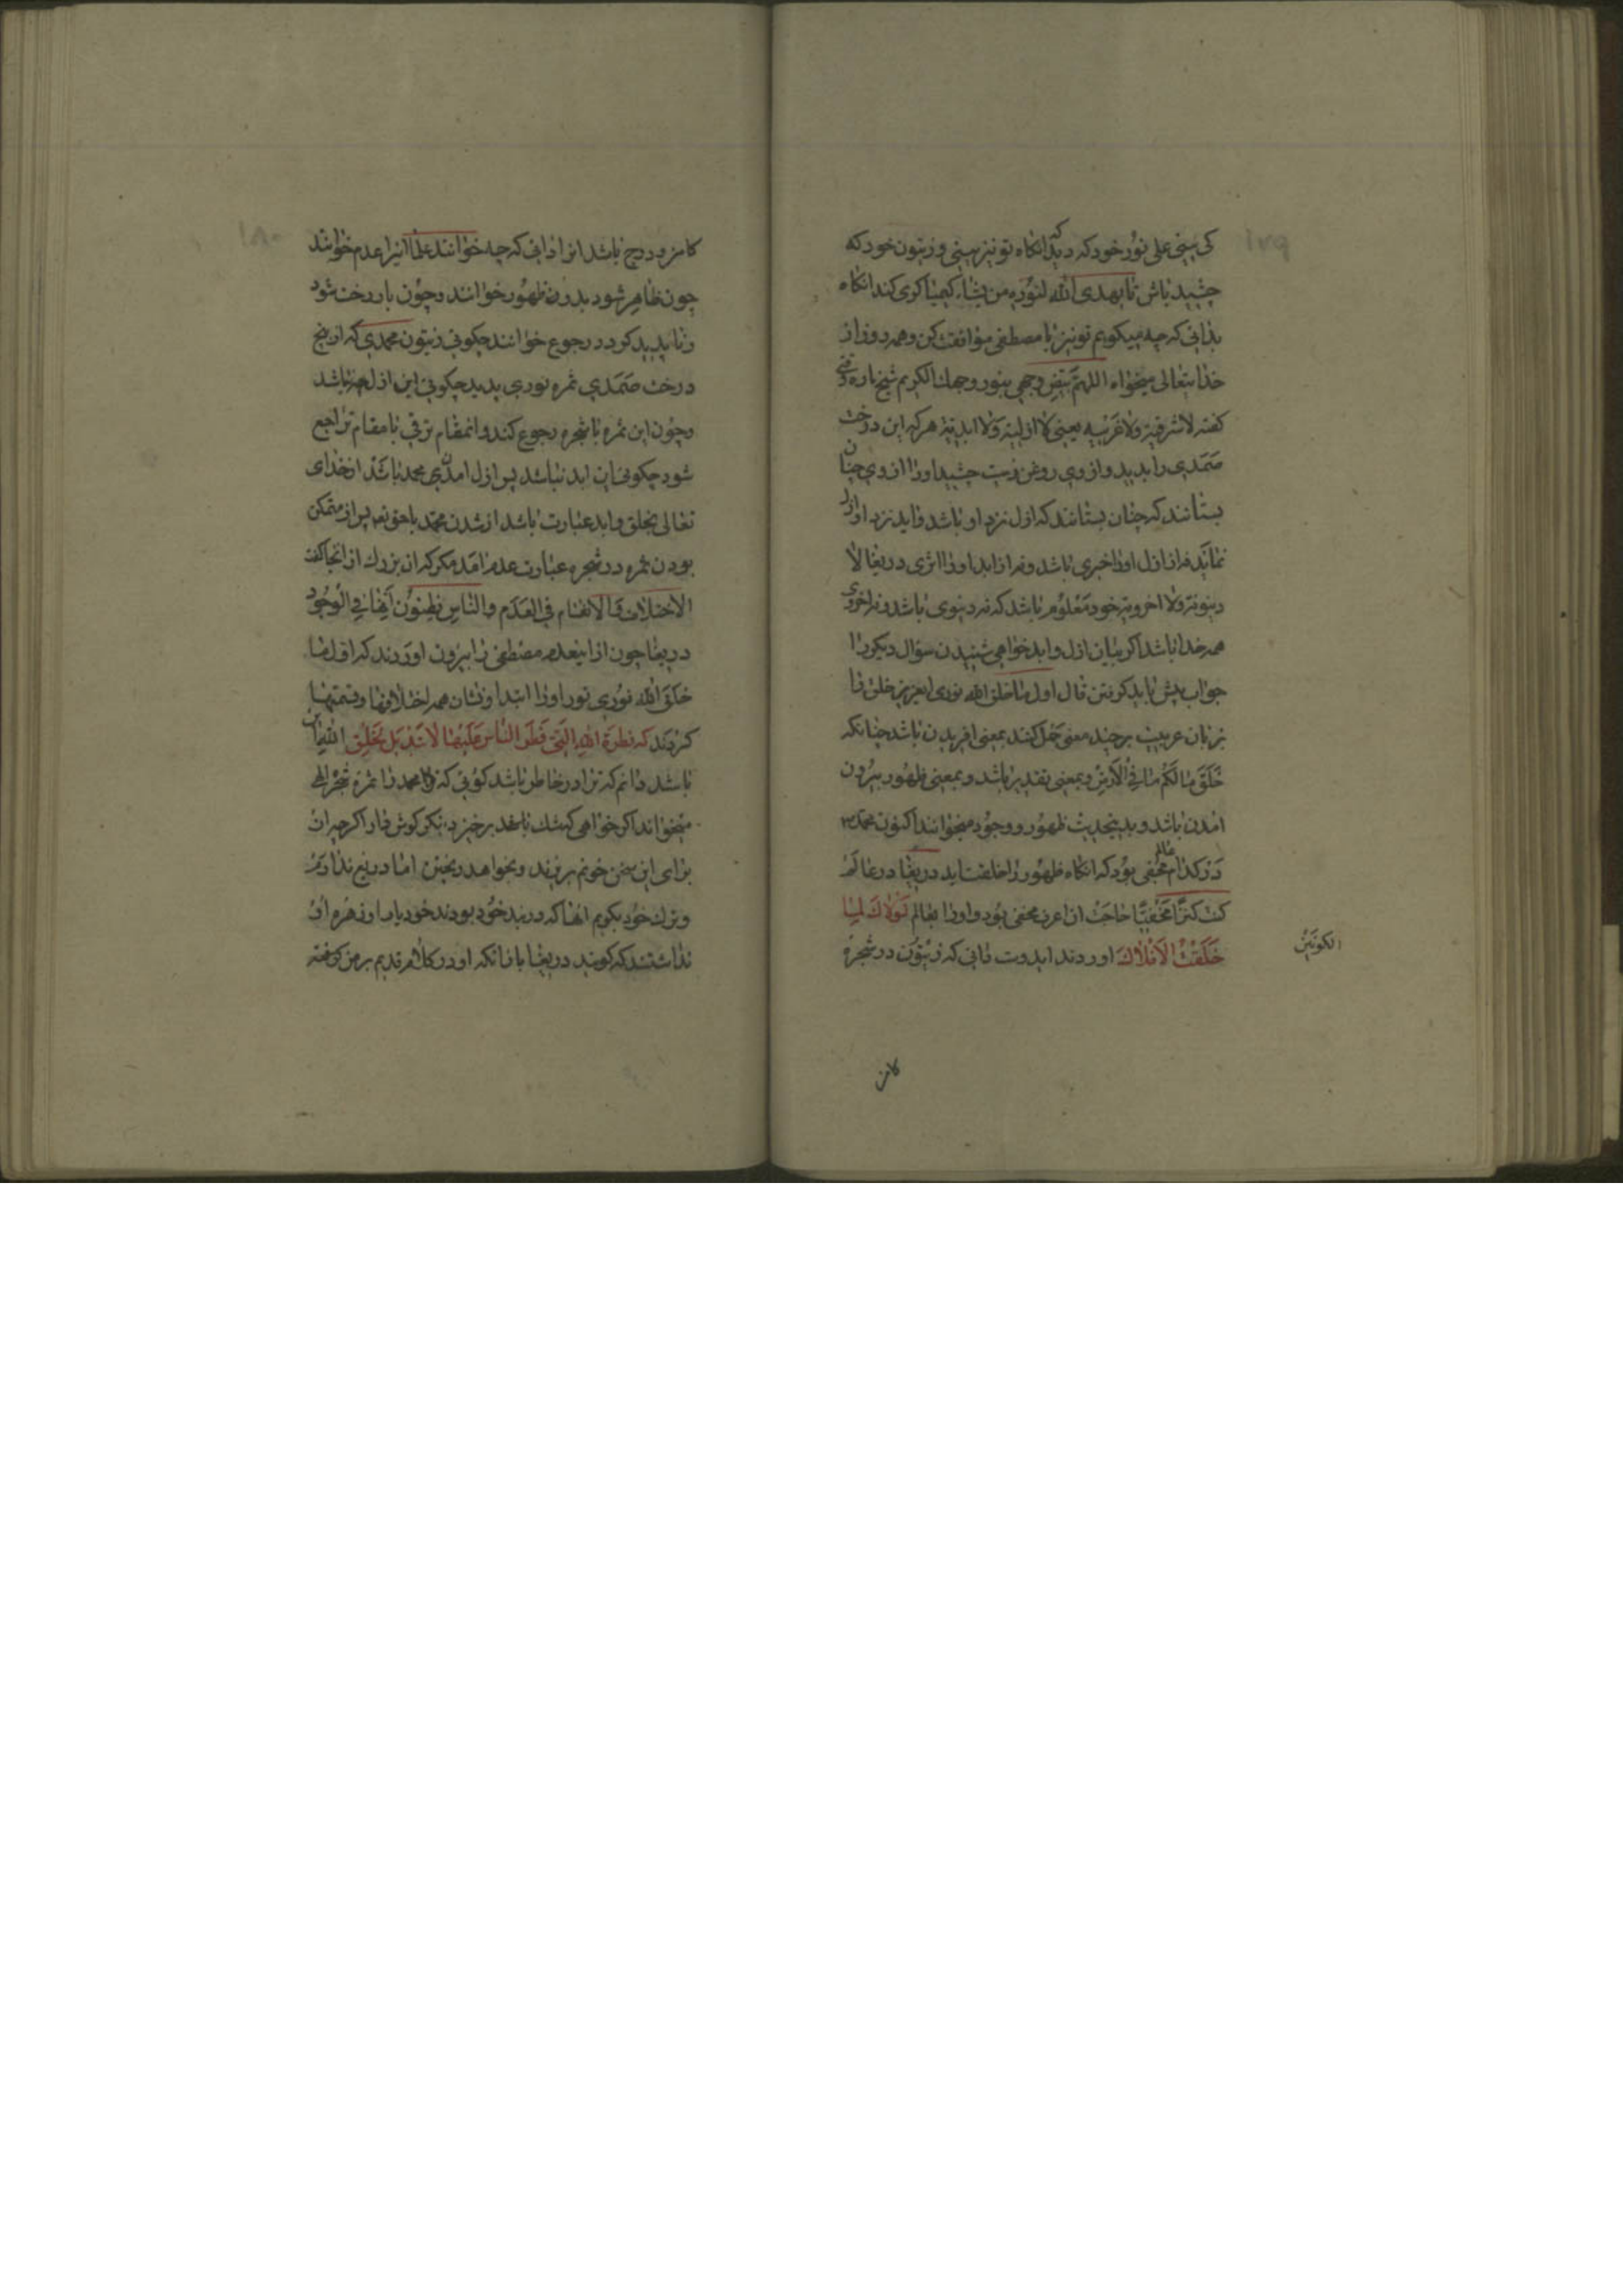 کی بینی علی نور خود که دید آنکاه تو نیز ببینی و زیتون خود که
چشید باش تا یهدی الله لنوره من یشاء کیمیا کری کند آنکاه
بدانی که چه میکویم تو نیز با مصطفی موافقت کن و همه روز از
خدایتعالی میخواه اللهم بیض وجهی بنور وجهک الکریم شیخ
کفته لا شرقیة ولا غربیه یعنی لا ازلیة ولا ابدیة هر که این درخت
صمدی را بدید و از وی روغن زیت چشید او را از وی چنان
بستانند که چنان بستانند که ازل نزد او باشد و ابد نزد او
نماند نه از ازل او را خبری باشد و نه از ابد او را اثری دریغا لا
دنیویة ولا اخرویة خود معلوم باشد که نه دنیوی باشد و نه اخروی
همه خدا باشد اکر بیان ازل و ابد خواهی شنیدن سؤال دیکر را
جواب پیش باید کرفتن قال اول ما خلق الله نوری ای عزیز خلق را
بزبان عربیت بر چند معنی حمل کنند بمعنی آفریدن باشد چنانکه
خلق لکم ما فی الارض و بمعنی تقدیر باشد و بمعنی ظهور بیرون
آمدن باشد و بدین حدیث ظهور و وجود میخوانند اکنون محمد
در کدام عالم مخفی بود که آنکاه ظهور را خلقت آید دریغا در عالم
کنت کنزا مخفیا خاجت ان اعرف مخفی بود و او را بعالم لولاک لما
خلقت الافلاک آوردند ای دوست دانی که زیتون در شجرة
الکونین
کامن
۱۷۹
کامن و درج باشد آنرا دانی که چه خوانند علما آنرا عدم خوانند
چون ظاهر شود بدون ظهور خوانند و چون با درخت شود
و ناپدید کردد رجوع خوانند چکونی زیتون محمدی که از بیخ
درخت صمدی ثمره نوری پدید چکونی این ازل باشد
و چون این ثمره با شجره رجوع کند و از مقام ترقی با مقام تراجع
شود چکونی این ابد نباشد پس ازل آمدن محمد باشد از خدای
تعالی بخلق و ابد عبارت باشد از شدن محمد با حق تعه پس از متمکن
بودن ثمره در شجره عبارت عدم آمد مکر که آن بزرک از اینجا کفت
الاختلاف والانقسام فی العدم والناس یظنون انها فی الوجود
دریغا چون از اینعدم مصطفی را بیرون آوردند که اول ما
خلق الله نوری نور او را ابتدا و نشان همه اختلافها و قسمتها
کردند که فطرة الله التی فطر الناس علیها لا تبدیل لخلق الله این
باشد دانم که ترا در خاطر باشد کوئی که محمد را ثمره شجر الهی
میخواند اکر خواهی که شک باشد بر خیزد نیکر کوش دار اکر چه از
برای این سخن خونم بریزند و بخواهد ریختن اما دریغ ندارم
و ترک خود بکویم آنها که در بند خود بودند خود یارا و زهره آن
نداشتند که کویند دریغا با آنکه او در کلام قدیم بر من کوفته
۱۸۰